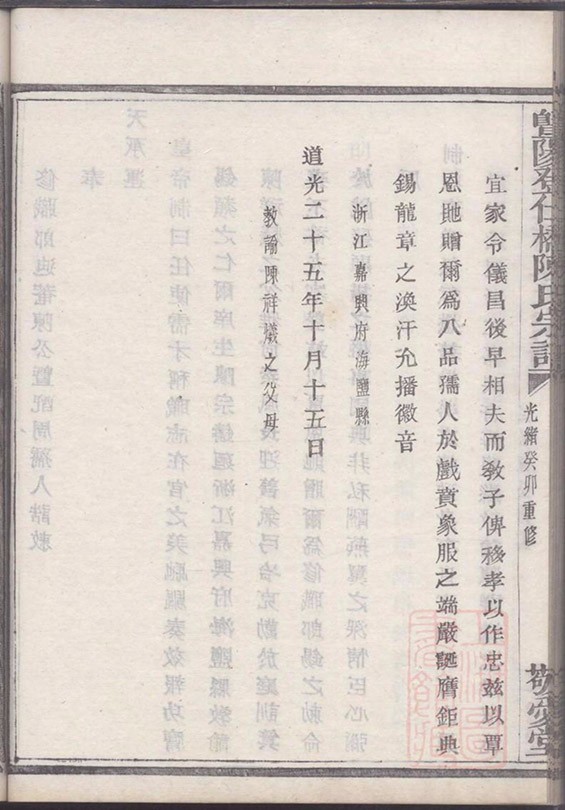 暨陽登仕橋陳氏宗譜
光緒癸卯重修
敬愛堂
宜家令儀昌後早相夫而敎子俾移孝以作忠兹以覃
恩貤贈爾爲八品孺人於戲賁象服之端嚴誕膺鉅典
錫龍章之渙汗允播徽音
浙江嘉興府海鹽縣
道光二十五年十月十五日
敎諭陳祥爔之父母